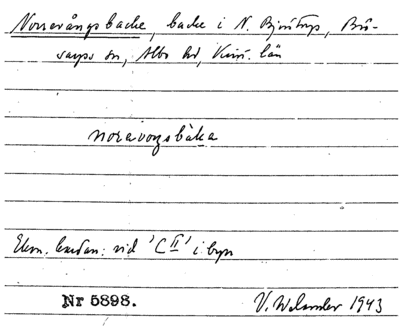 Norravångsbacke, backe i N. Björstorp, Brö-
sarps sn, Albo hd, Krist. län
noravoŋsbaka
vid 'C II' i byn
Nr 5898.
V. Welander 1943